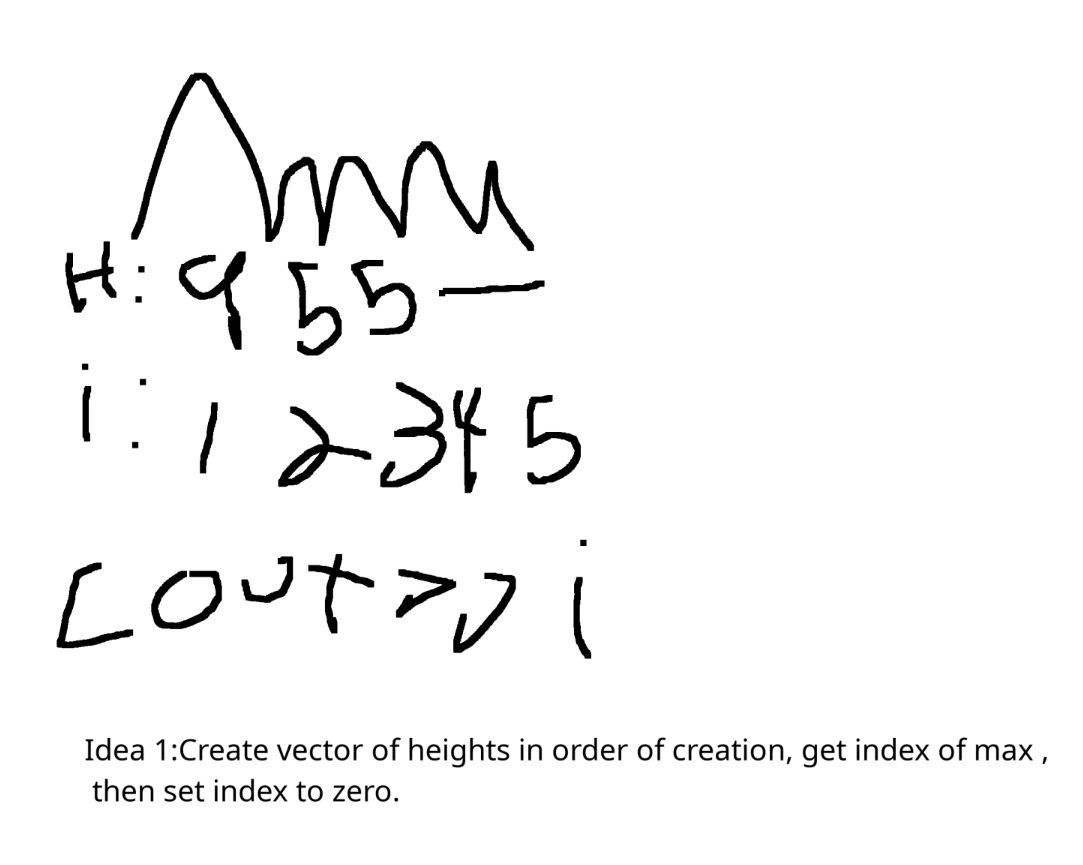 H: 9 5 5 —
i : 1 2 3 4 5
cout >> i
Idea 1:Create vector of heights in order of creation, get index of max ,
then set index to zero.